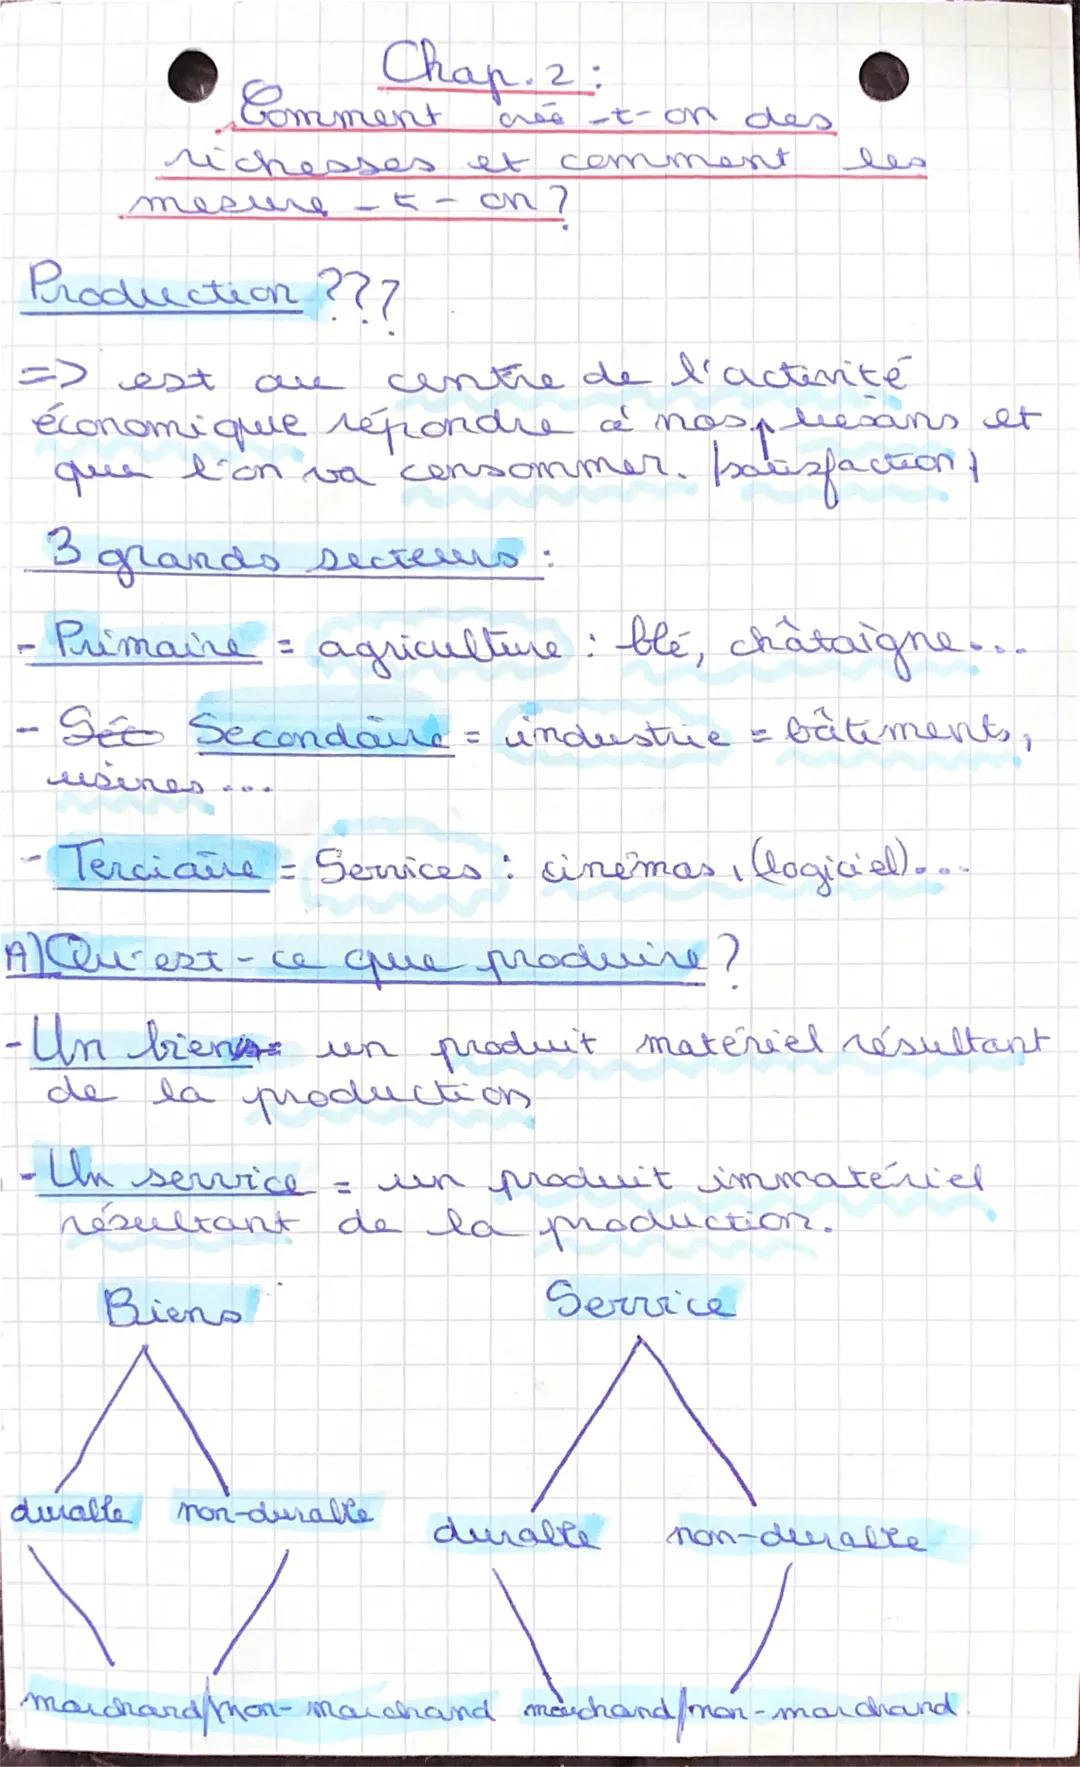 Chap. 2 :
Comment créé-t-on des
richesses et comment les
mesure-t-on ?
Production ???
=> est au centre de l'activité
économique répondre à nos besoins et
que l'on va consommer. (satisfaction)
3 grands secteurs :
- Primaire = agriculture : blé, châtaigne...
- Séc Secondaire = industrie = bâtiments,
usines ...
- Terciaire = Services : cinémas, (logiciel)...
A) Qu'est-ce que produire ?
- Un bien = un produit matériel résultant
de la production
- Un service = un produit immatériel
résultant de la production.
Biens Service
durable non-durable durable non-durable
marchand/non-marchand marchand/non-marchand